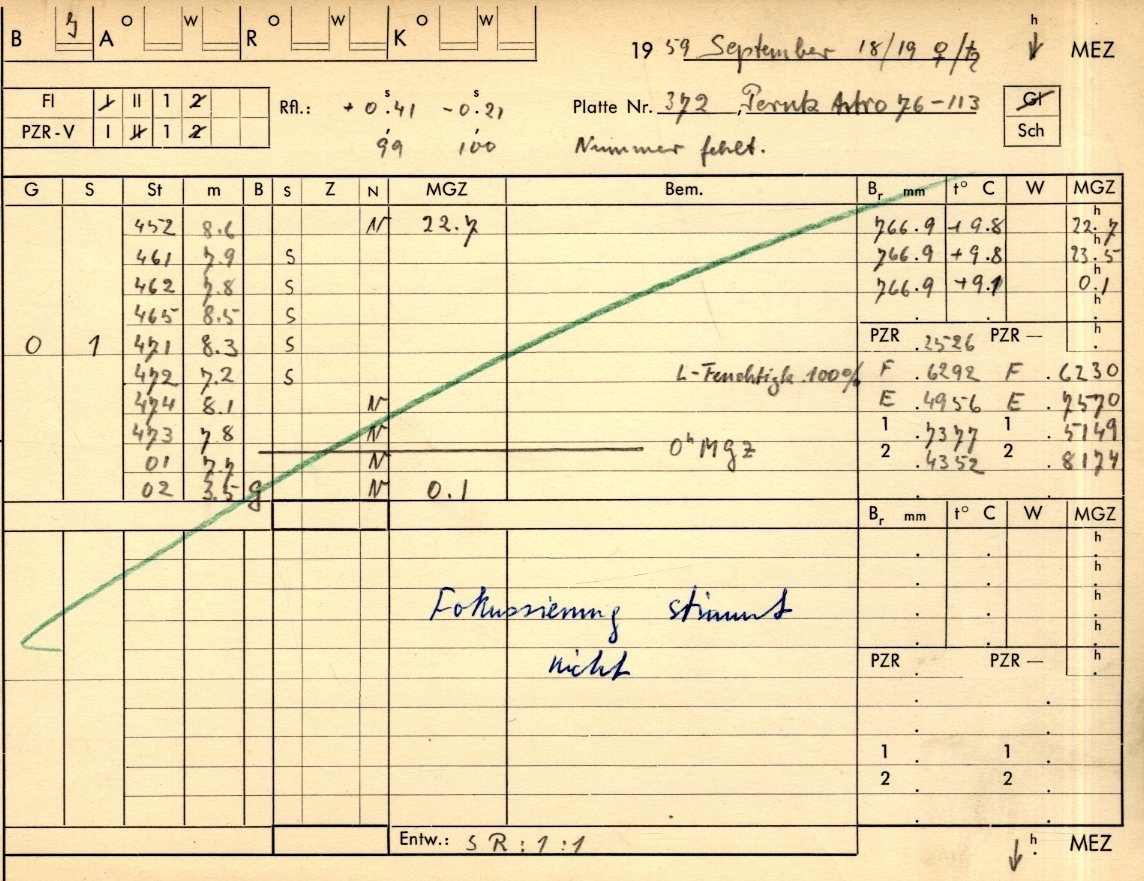 B A O W R O W K O W h
19 59 September 18/19 ♀/♄ MEZ
Fl I II 1 2 Rfl.: + 0.ˢ41 - 0.ˢ21 Platte Nr. 372, Perutz Astro 76-113 Gl
PZR-V I II 1 2 99 100 Nummer fehlt. Sch
G S St m B S Z N MGZ Bem. Bᵣ mm t° C W MGZ
452 8.6 N 22.7 766.9 +9.8 22.ʰ7
461 7.9 S 766.9 +9.8 23.ʰ5
462 7.8 S 766.9 +9.1 0.ʰ1
465 8.5 S . . h
0 1 471 8.3 S PZR .2526 PZR — h
472 7.2 S L-Feuchtigk. 100% F .6292 F .6230
474 8.1 N E .4956 E .7570
473 7.8 N 1 .7377 1 .5149
01 7.7 N 0ʰ MGZ 2 .4352 2 .8174
02 3.5 g N 0.1
Bᵣ mm t° C W MGZ
h
h
h
Fokussierung stimmt h
nicht PZR . PZR — h
1 . 1
2 . 2 .
Entw.: S R : 1 : 1 h MEZ